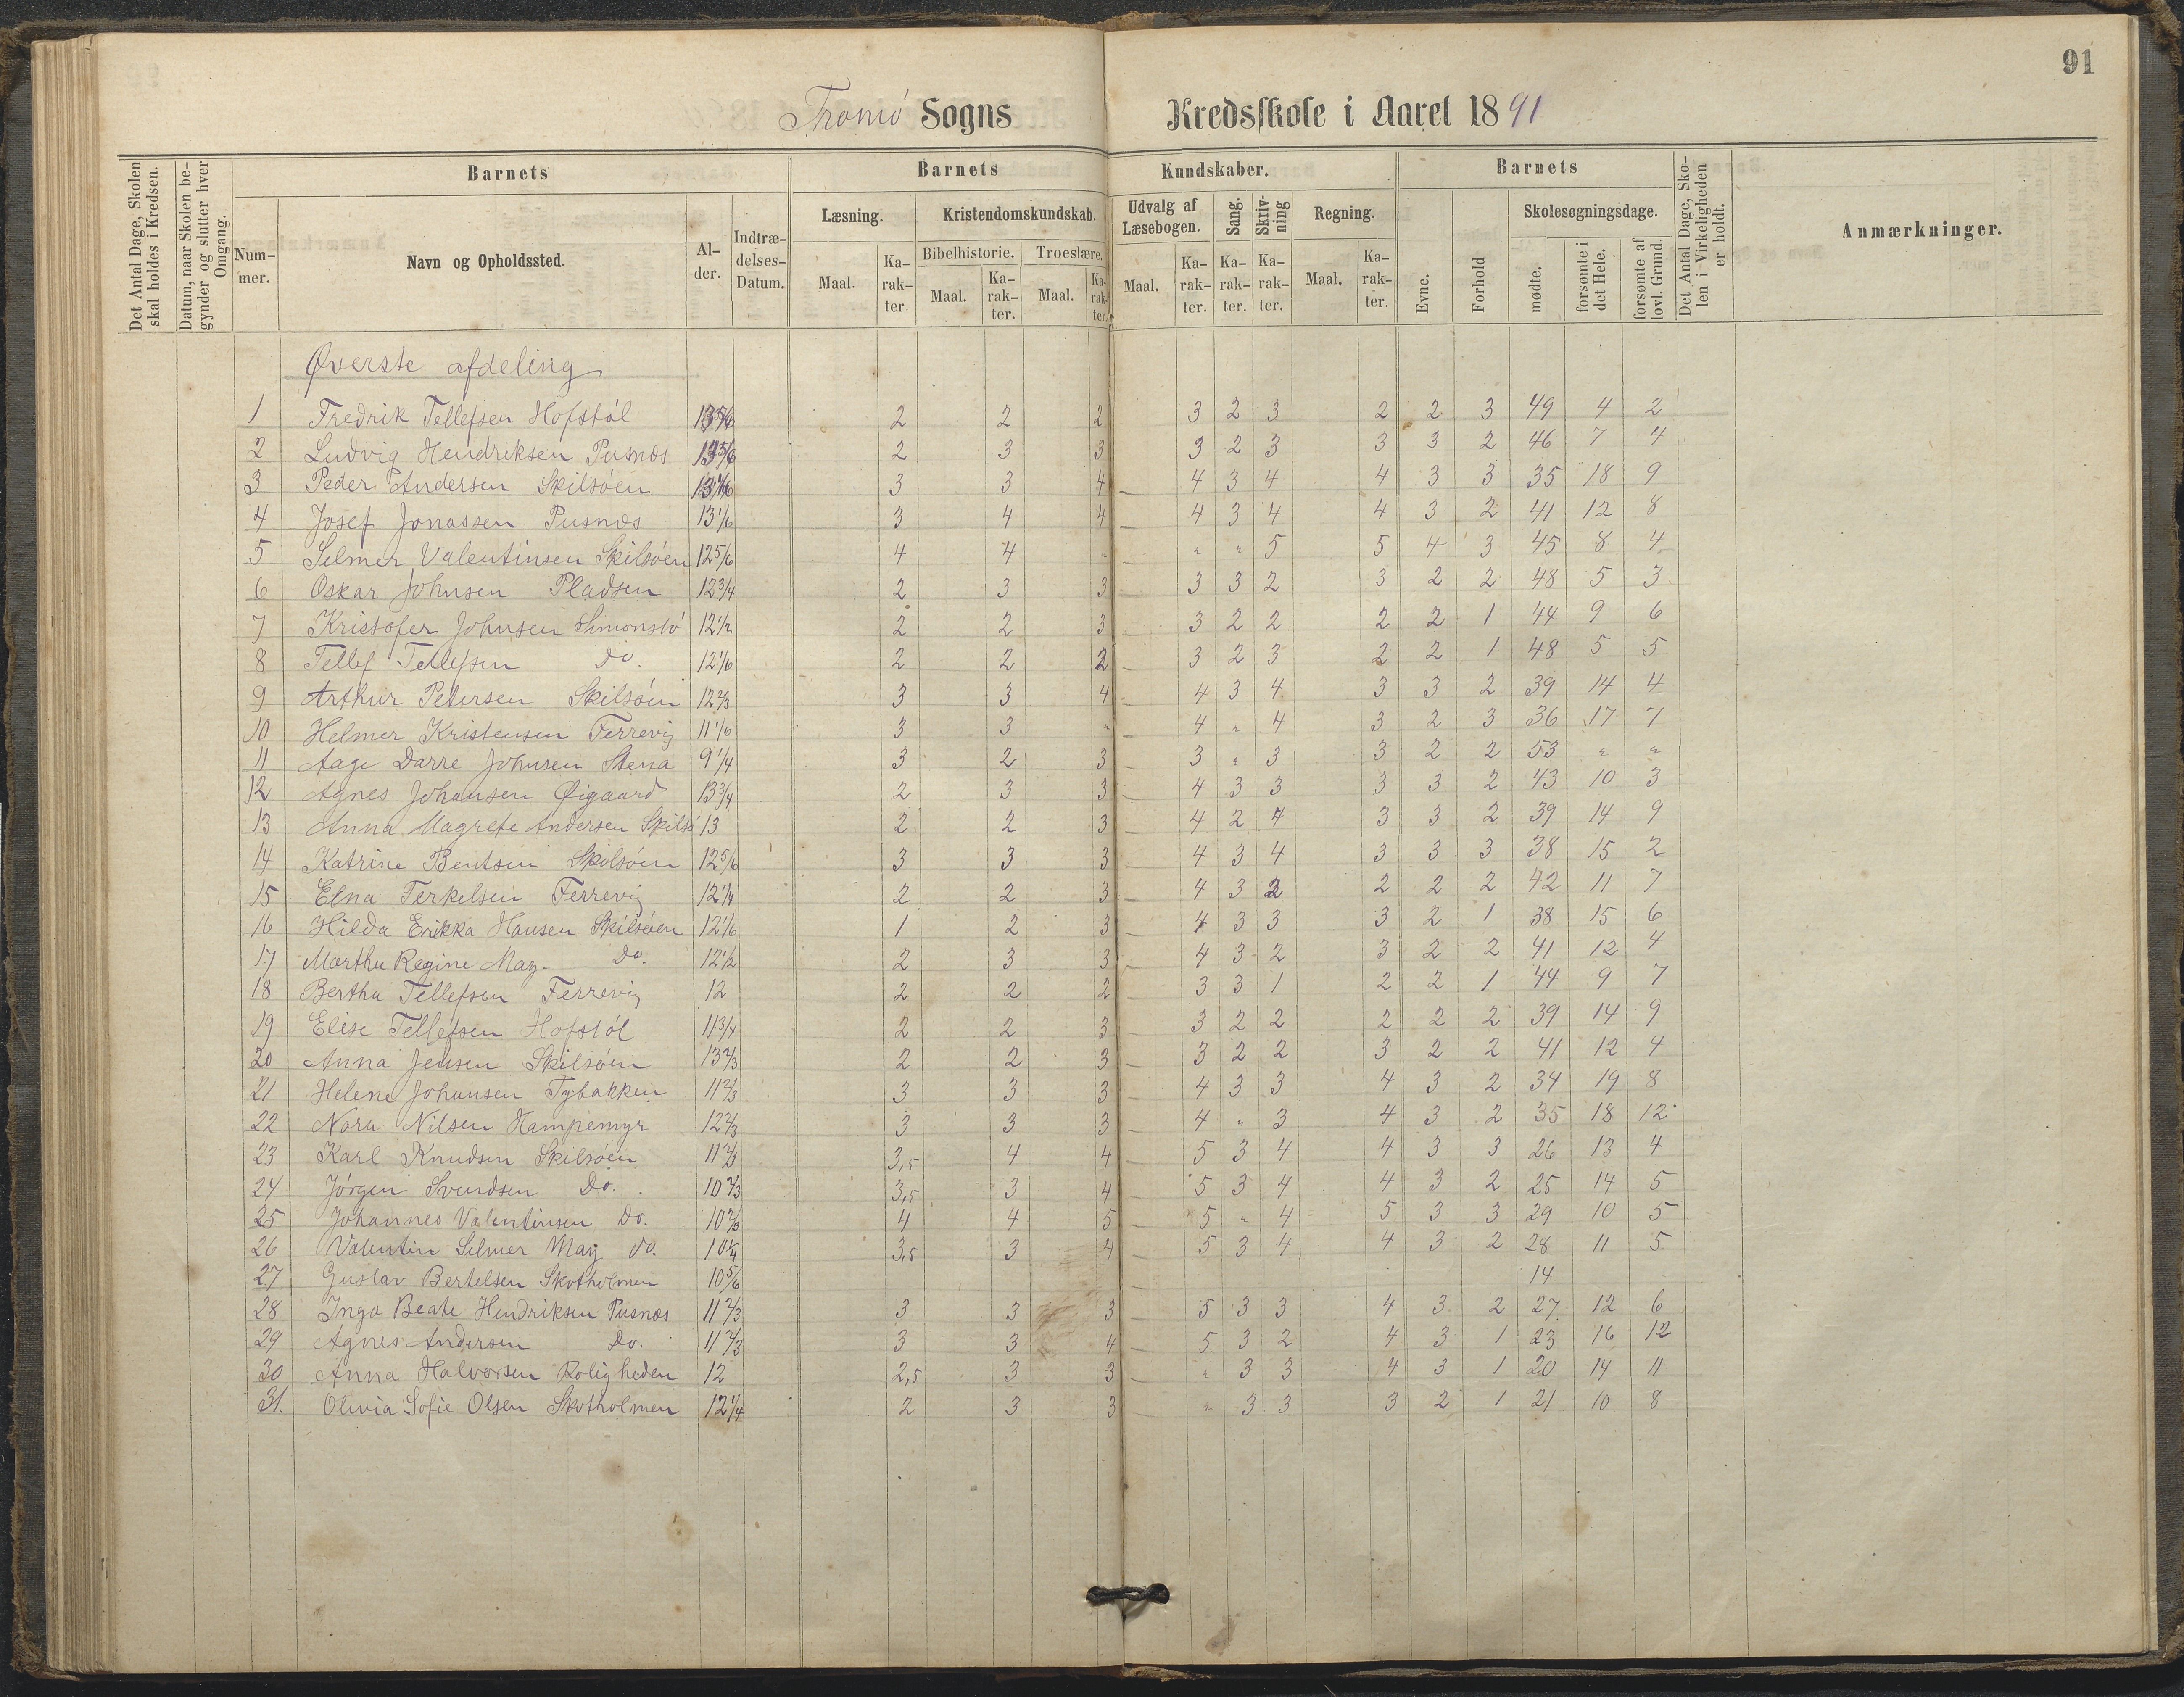 91
Tromö Sogns Kredsskole i Aaret 1891
Det Antal Dage, Skolen skal holdes i Kredsen.
Datum, naar Skolen begynder og slutter hver Omgang.
Barnets
Nummer.
Navn og Opholdssted.
Alder.
Indtrædelses-Datum.
Barnets Kundskaber.
Læsning.
Maal.
Karakter.
Kristendomskundskab.
Bibelhistorie.
Maal.
Karakter.
Troeslære.
Maal.
Karakter.
Udvalg af Læsebogen.
Maal.
Karakter.
Sang.
Karakter.
Skrivning
Karakter.
Regning.
Maal.
Karakter.
Barnets
Evne.
Forhold
Skolesøgningsdage.
mødte.
forsømte i det Hele.
forsømte af lovl. Grund.
Det Antal Dage, Skolen i Virkeligheden er holdt.
Anmærkninger.
Øverste afdeling
1 Fredrik Tellefsen Hofstöl 13 5/6 2 2 2 3 2 3 2 2 3 49 4 2
2 Ludvig Hendriksen Pusnæs 13 5/6 2 3 3 3 2 3 3 3 2 46 7 4
3 Peder Andersen Skilsöen 13 1/6 3 3 4 4 3 4 4 3 3 35 18 9
4 Josef Jonassen Pusnæs 13 1/6 3 4 4 4 3 4 4 3 2 41 12 8
5 Selmer Valentinsen Skilsöen 12 5/6 4 4 " " " 5 5 4 3 45 8 4
6 Oskar Johnsen Pladsen 12 3/4 2 3 3 3 3 2 3 2 2 48 5 3
7 Kristofer Johnsen Simonstö 12 1/2 2 2 3 3 2 2 2 2 1 44 9 6
8 Tellef Tellefsen do. 12 1/6 2 2 2 3 2 3 2 2 1 48 5 5
9 Arthur Petersen Skilsöen 12 2/3 3 3 4 4 3 4 3 3 2 39 14 4
10 Helmer Kristensen Ferrevig 11 1/6 3 3 " 4 " 4 3 2 3 36 17 7
11 Aage Darre Johnsen Stena 9 1/4 3 2 3 3 " 3 3 2 2 53 " "
12 Agnes Johansen Øigaard 13 3/4 2 3 3 4 3 3 3 3 2 43 10 3
13 Anna Magrete Andersen Skilsö 13 2 2 3 4 2 4 3 3 2 39 14 9
14 Katrine Bentsen Skilsöen 12 5/6 3 3 3 4 3 4 3 3 3 38 15 2
15 Elna Terkelsen Ferrevig 12 1/4 2 2 3 4 3 2 2 2 2 42 11 7
16 Hilda Erikka Hansen Skilsöen 12 1/6 1 2 3 4 3 3 3 2 1 38 15 6
17 Marthe Regine May do. 12 1/2 2 3 3 4 3 2 3 2 2 41 12 4
18 Bertha Tellefsen Ferrevig 12 2 2 2 3 3 1 2 2 1 44 9 7
19 Elise Tellefsen Hofstöl 11 3/4 2 2 3 3 2 2 2 2 2 39 14 9
20 Anna Jensen Skilsöen 13 2/3 2 2 3 3 2 2 3 2 2 41 12 4
21 Helene Johansen Tybakken 11 2/3 3 3 3 4 3 3 4 3 2 34 19 8
22 Nora Nilsen Hampemyr 12 2/3 3 3 3 4 " 3 4 3 2 35 18 12
23 Karl Knudsen Skilsöen 11 2/3 3,5 4 4 5 3 4 4 3 3 26 13 4
24 Jörgen Svendsen Do. 10 2/3 3,5 3 4 5 3 4 4 3 2 25 14 5
25 Johannes Valentinsen Do. 10 2/3 4 4 5 5 " 4 5 3 3 29 10 5
26 Valentin Selmer May do. 10 1/4 3,5 3 4 5 3 4 4 3 2 28 11 5
27 Gustav Bertelsen Skotholmen 10 5/6 14
28 Inga Beate Hendriksen Pusnæs 11 2/3 3 3 3 5 3 3 4 3 2 27 12 6
29 Agnes Andersen Do. 11 2/3 3 3 4 5 3 2 4 3 1 23 16 12
30 Anna Halvorsen Roligheden 12 2,5 3 3 " 3 3 4 3 1 20 14 11
31. Olivia Sofie Olsen Skotholmen 12 1/4 2 3 3 " 3 3 3 2 1 21 10 8